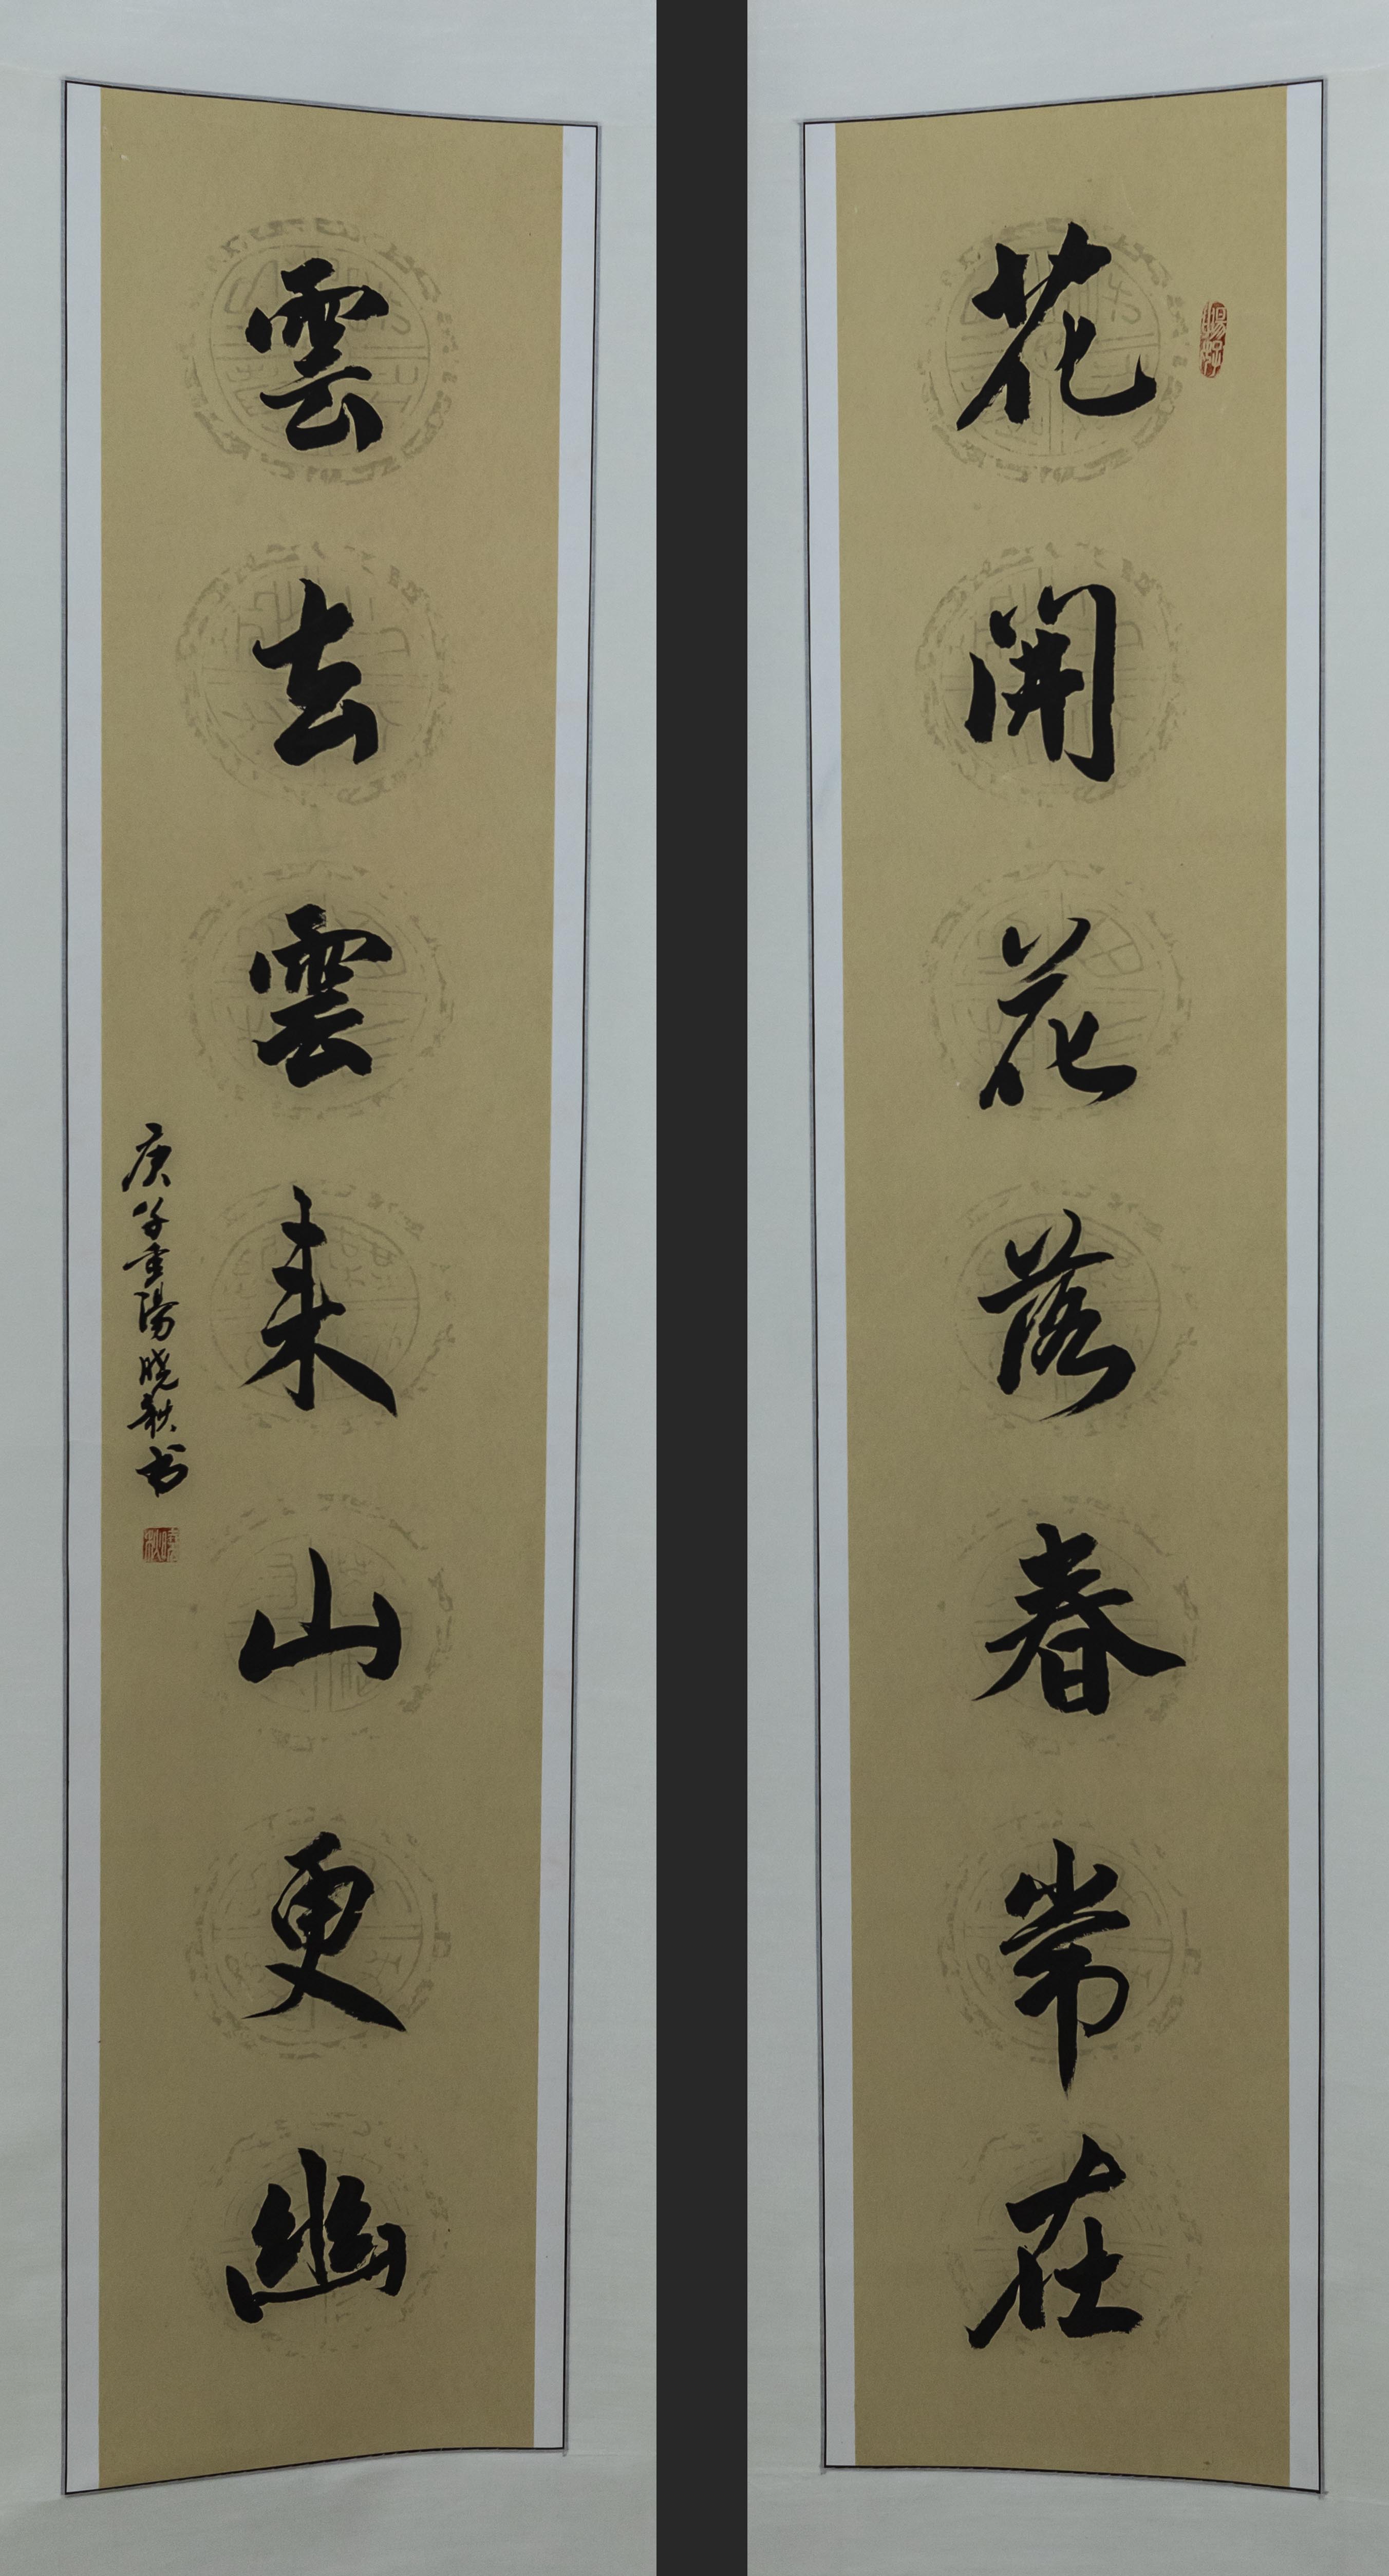 花開花落春常在
雲去雲來山更幽
庚子重陽晓秋书